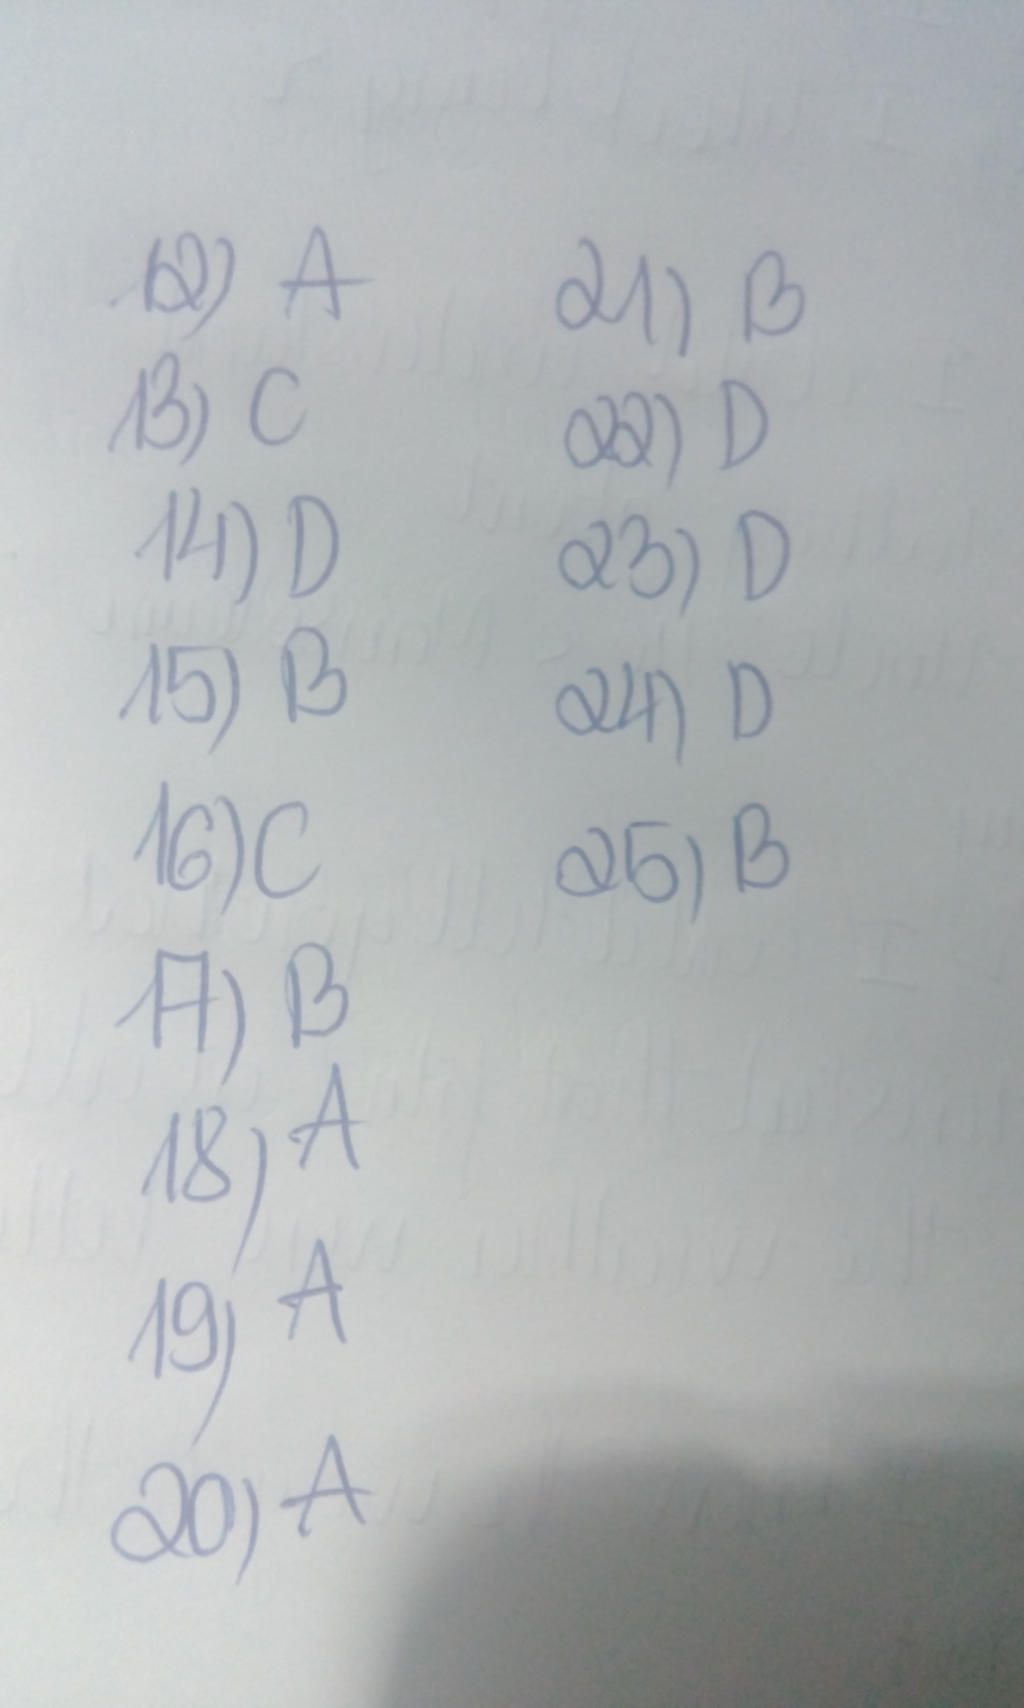 12) A
13) C
14) D
15) B
16) C
17) B
18) A
19) A
20) A
21) B
22) D
23) D
24) D
25) B